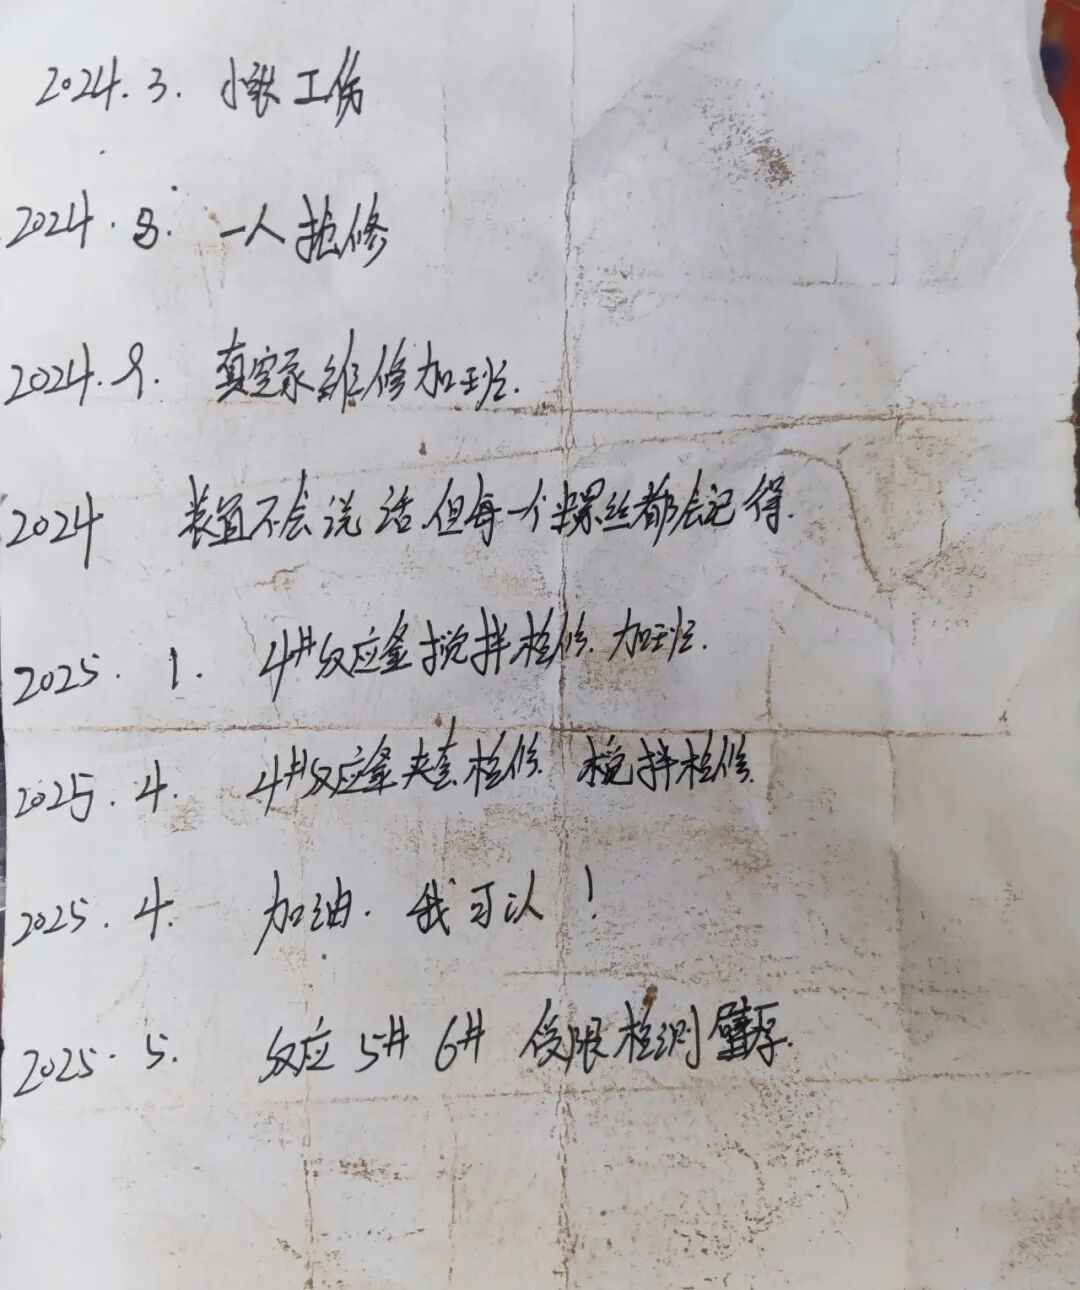 2024.3. 小张工伤
2024.8. 一人抢修
2024.9. 真空泵维修加班.
2024 装置不会说话.但每一个螺丝都会记得.
2025.1. 4#反应釜搅拌检修.加班.
2025.4. 4#反应釜夹套检修.搅拌检修.
2025.4. 加油.我可以!
2025.5. 反应5# 6# 受限检测壁厚.